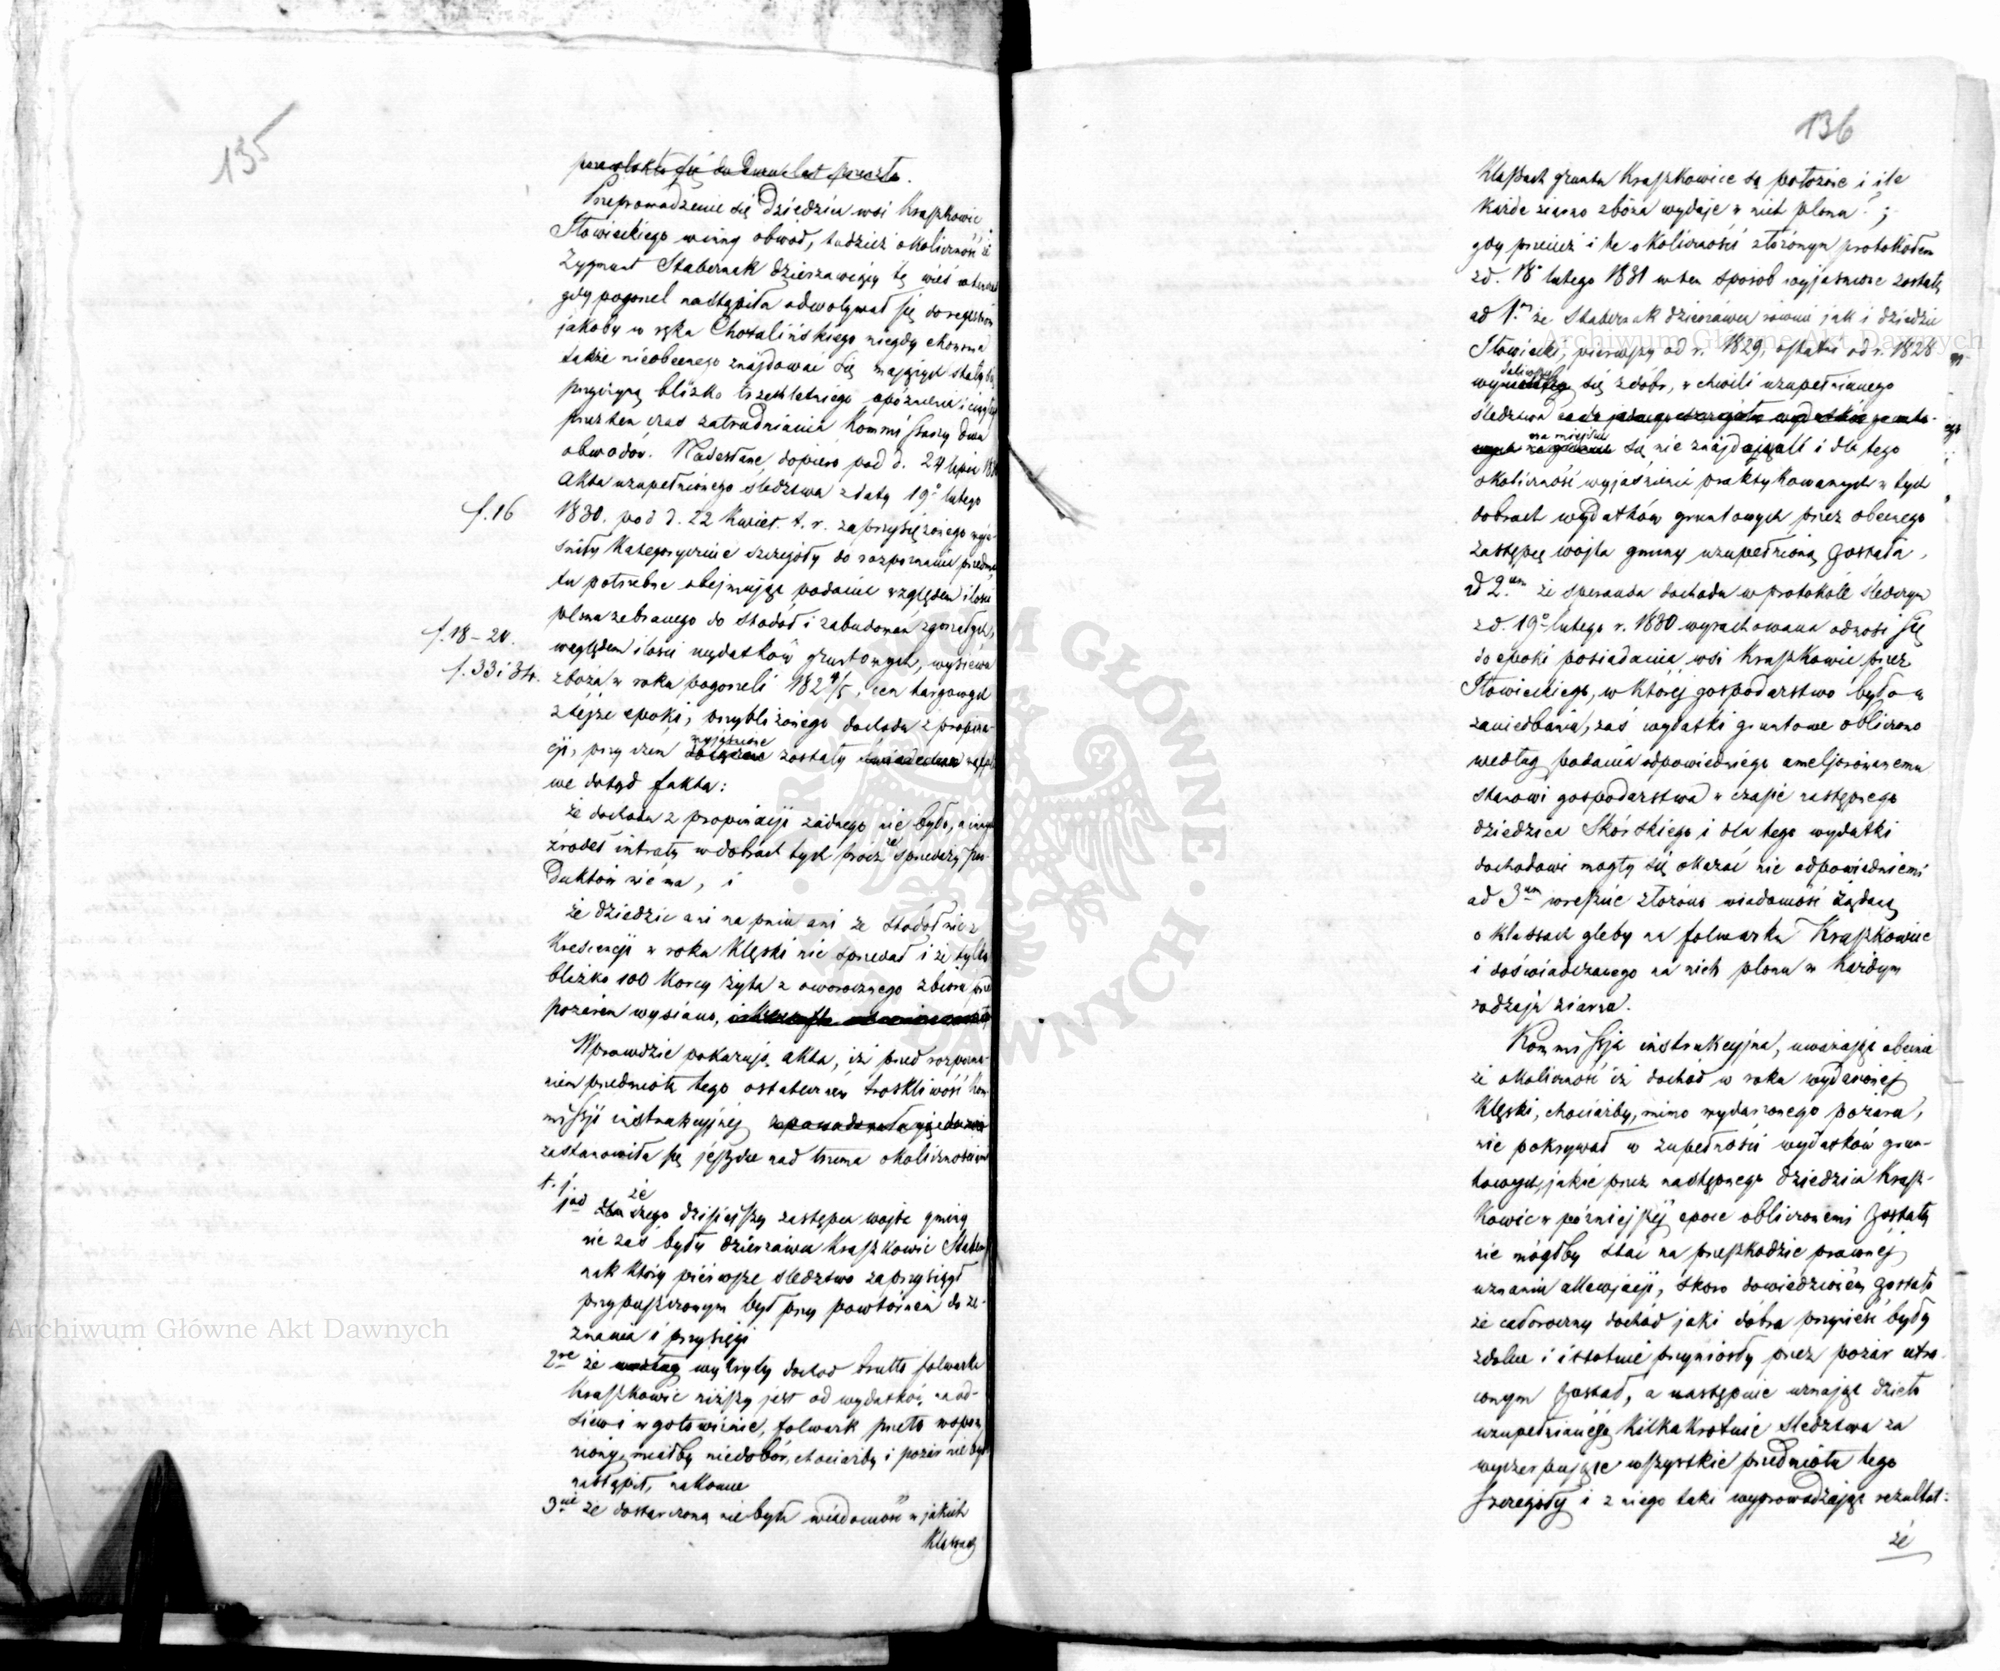 135
Przeprowadzenie się Dziedzica wsi Kraszkowic
Iłowieckiego w inny obwód, tudzież okoliczność iż
Zygmunt Stabernak dzierzawiący tę wieś
gdy pogorzel nastąpiła odwoływał się do
jakoby w ręku Chotalińskiego niegdy
także nieobecnego znajdować się mających
przyczyną blizko trzechletniego opóźnienia i
przez ten czas zatrudniania Kommissarzy dwu
obwodów. Nadesłane dopiero pod d. 24 lipca
Akta uzupełnionego śledztwa z daty 19o lutego
f. 16
1830. pod d. 22 Kwiet. t. r. zaprzysiężonego
kategorycznie szczegóły do rozpoznania
potrzebne obejmując podanie względem ilości
plonu zebranego do stodół i zabudowań zgorzałych,
f. 18 – 20.
względem ilości wydatków gruntowych, wysiewu
f. 33 i 34.
zboża w roku pogorzeli 182 4/5, cen targowych
z tejże epoki, przybliżonego dochodu z propina-
cji, przy czem wyjaśnione zostały
we dotąd fakta:
że dochodu z propinacji żadnego nie było, a innych
źródeł intraty w dobrach tych prócz ze sprzedaży pro-
duktów nié ma, i
że dziedzic ani na pniu ani ze stodół nic z
Krescencji w roku klęski nie sprzedał i że tylko
blizko 100 korcy żyta z owocznego zbioru przed
pożarem wysiano,
Wprawdzie pokazują akta, iż przed rozpozna-
niem przedmiotu tego ostatecznem troskliwość Kom-
missji instrukcyjnej
zastanowiła się jeszcze nad trzema okolicznościami
t. j.
1mo że dzisiejszy zastępca wójta gminy
nie zaś były dzierzawca Kraszkowic Staber-
nak który pierwsze śledztwo zaprzysiągł
przypuszczonym był przy powtórnem do ze-
znania i przysięgi
2re że wykryty dochód brutto folwarku
Kraszkowic niższy jest od wydatków na od-
siew i w gotowiźnie, folwark przeto wspom-
niony miałby niedobór, chociażby i pożar nie był
nastąpił, nakoniec
3cie że dostarczoną nie była wiadomość w jakich
klassach
136
klassach grunta Kraszkowice są położone i ile
każde ziarno zboża wydaje z nich plonu ;
gdy przecież i te okoliczności złożonym protokołem
z d. 18o lutego 1831 w ten sposób wyjaśnione zostały
ad 1m że Stabernak dzierzawca równie jak i dziedzic
Iłowiecki, pierwszy od r. 1829, ostatni od r. 1828
się z dóbr, w chwili uzupełnianego
śledztwa
na miejscu się nie znajdowali i dla tego
okoliczność wyjaśnienia praktykowanych w tych
dobrach wydatków gruntowych przez obecnego
zastępcę wójta gminy uzupełnioną została.
ad 2um że speranda dochodu w protokóle śledczym
z d. 19o lutego r. 1830 wyrachowana odnosi się
do epoki posiadania wsi Kraszkowic przez
Iłowieckiego, w której gospodarstwo było w
zaniedbaniu, zaś wydatki gruntowe obliczono
według podania odpowiedniego ameljorowanemu
stanowi gospodarstwa w czasie następnego
dziedzica Skórskiego i dla tego wydatki
dochodowi mogły się okazać nie odpowiedniemi
ad 3um wreszcie złożono wiadomość żądaną
o klassach gleby na folwarku Kraszkowice
i doświadczanego na nich plonu w każdym
rodzaju ziarna.
Kommissja instrukcyjna, uważając obecnie
że okoliczność iż dochód w roku wydarzonej
klęski, chociażby, mimo wydarzonego pożaru,
nie pokrywał w zupełności wydatków grun-
towych, jakie przez następnego dziedzica Krasz-
kowic w późniejszej epoce obliczonemi zostały
nie mógłby stać na przeszkodzie prawnej
uznaniu allewjacji, skoro dowiedzionem zostało
że całoroczny dochód jaki dobra przynieść były
zdolne i istotnie przyniosły przez pożar utra-
conym został, a następnie uznając dzieło
uzupełnianego kilkakrotnie śledztwa za
wyczerpujące wszystkie przedmiotu tego
szczegóły i z niego taki wyprowadzając rezultat:
że
Archiwum Główne Akt Dawnych
Archiwum Główne Akt Dawnych
ARCHIWUM GŁÓWNE AKT DAWNYCH